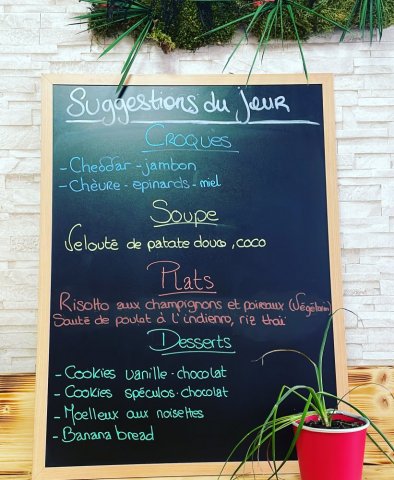 Suggestions du jour
Croques
- Cheddar - jambon
- Chèvre - epinards - miel
Soupe
Velouté de patate douce, coco
Plats
Risotto aux champignons et poireaux (Végétarien)
Sauté de poulat à l'indienne, riz thaï
Desserts
- Cookies vanille - chocolat
- Cookies spéculos - chocolat
- Moelleux aux noisettes
- Banana bread